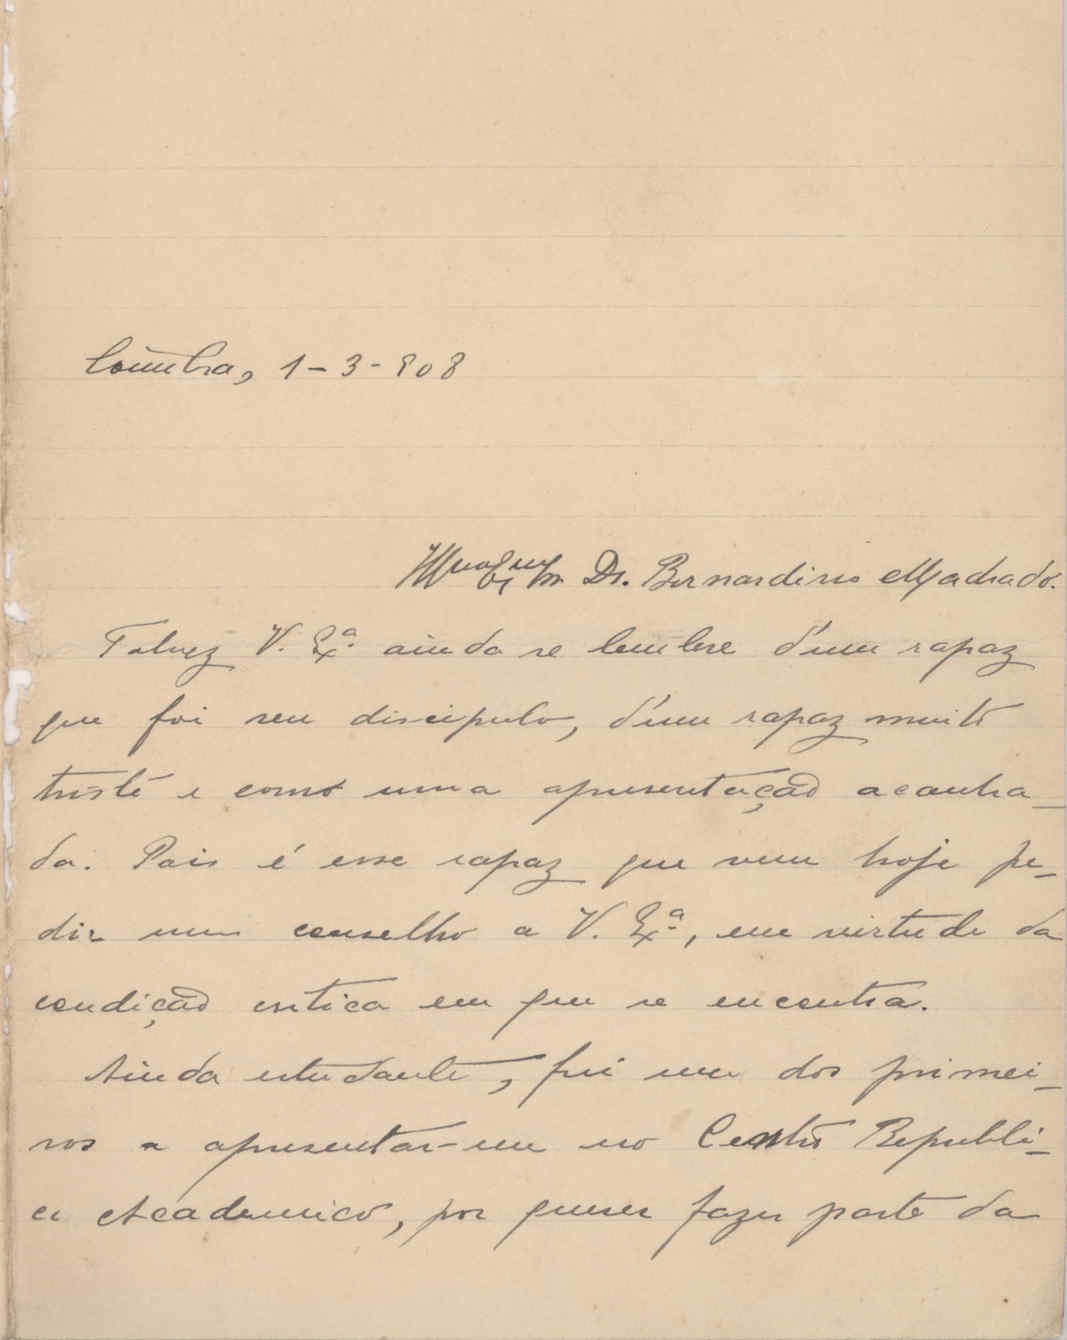 Coimbra, 1-3-908
Illmo Exmo Sr Dr. Bernardino Machado.
Talvez V. Exª ainda se lembre d'um rapaz
que foi seu discipulo, d'um rapaz muito
triste e como uma apresentação acanha-
da. Pois é esse rapaz que vem hoje pe-
dir um conselho a V. Exª, em virtude da
condição critica em que se encontra.
Ainda estudante, fui um dos primei-
ros a apresentar-me no Centro Republi-
co Academico, por querer fazer parte da